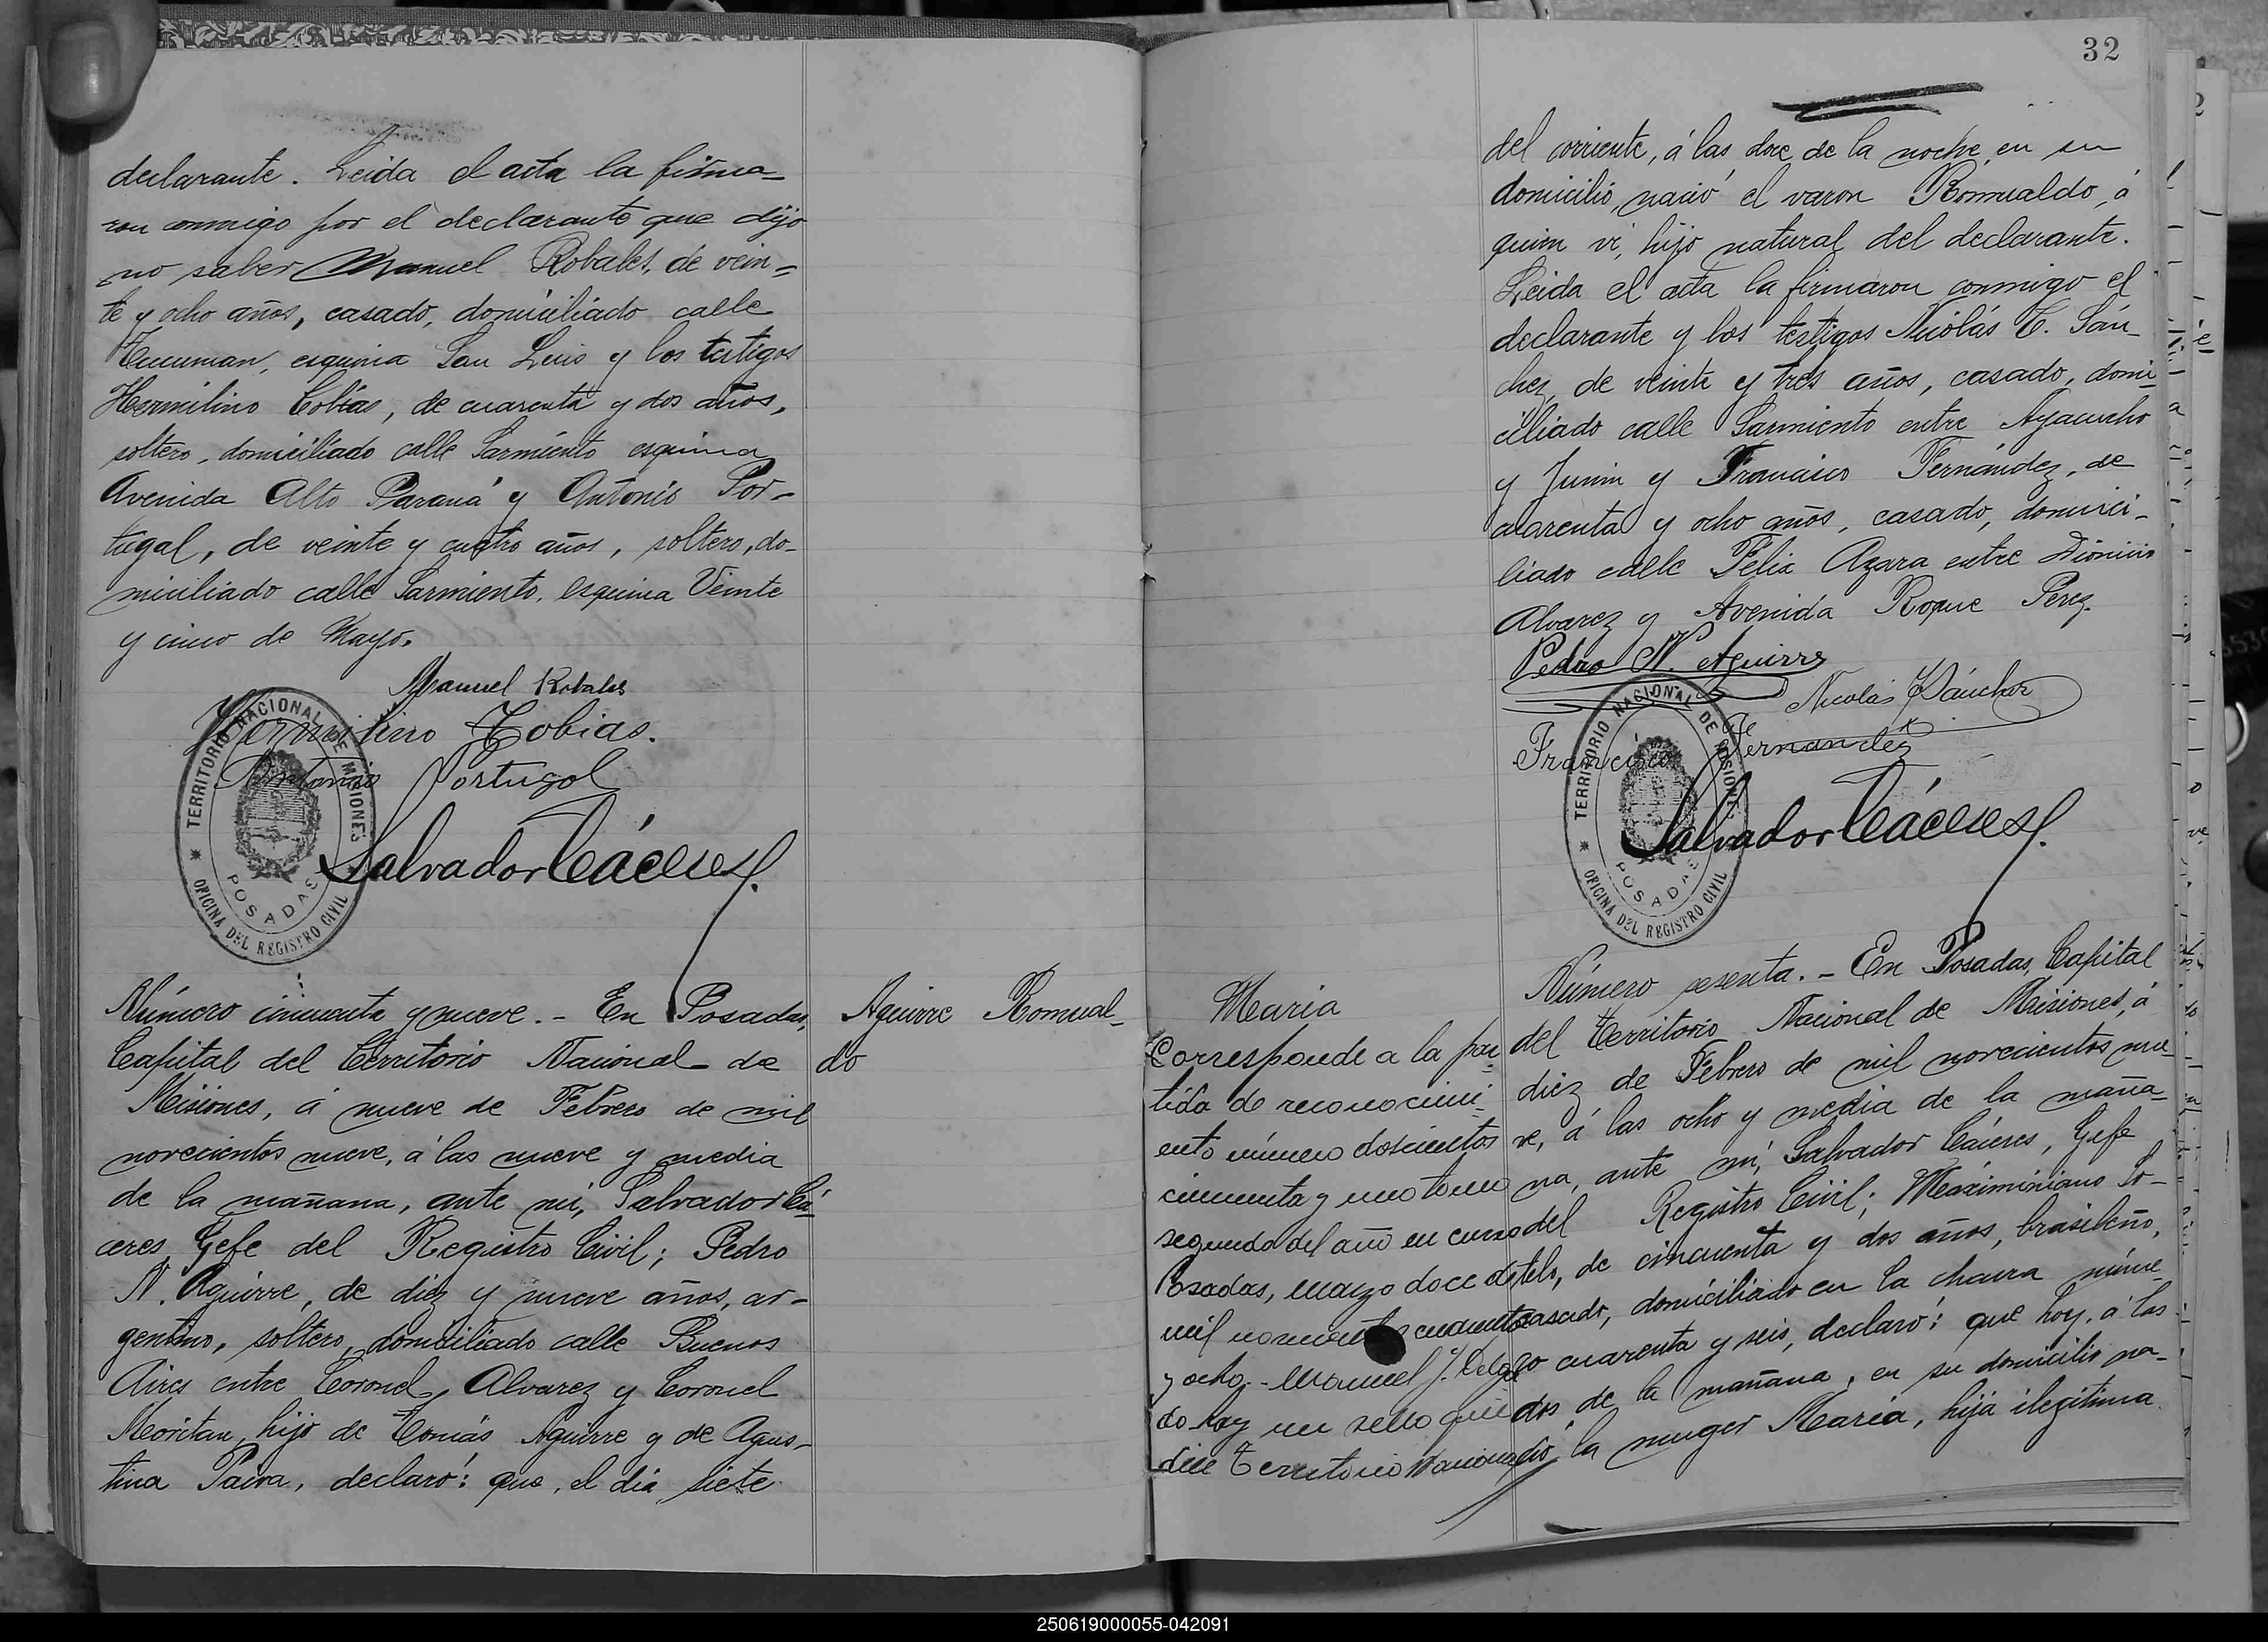 declarante. Leida el acta la firma-
ron conmigo por el declarante que dijo
no saber Manuel Robales, de vein-
te y ocho años, casado, domiciliado calle
Tucuman, esquina San Luis y los testigos
Hermilino Tobías, de cuarenta y dos años,
soltero, domiciliado calle Sarmiento esquina
Avenida Alto Paraná y Antonio Por-
tugal, de veinte y cuatro años, soltero, do-
miciliado calle Sarmiento, esquina Veinte
y cinco de Mayo.
Manuel Robales
Hermilino Tobias.
Antonio Portugal
Salvador Cáceres
TERRITORIO NACIONAL DE MISIONES
POSADAS
OFICINA DEL REGISTRO CIVIL
Número cincuenta y nueve. - En Posadas,
Capital del Territorio Nacional de
Misiones, á nueve de Febrero de mil
novecientos nueve, á las nueve y media
de la mañana, ante mí, Salvador Cá-
ceres, Gefe del Registro Civil; Pedro
N. Aguirre, de diez y nueve años, ar-
gentino, soltero, domiciliado calle Buenos
Aires entre Coronel Alvarez y Coronel
Moritan, hijo de Tomás Aguirre y de Agus-
tina Paiva, declaró: que, el dia siete
Aguirre Romual-
do
32
del corriente, á las doce de la noche en su
domicilio, nació el varon Romualdo, á
quien ví, hijo natural del declarante.
Leida el acta la firmaron conmigo el
declarante y los testigos Nicolás T. Sán-
chez, de veinte y tres años, casado, domi-
ciliado calle Sarmiento entre Ayacucho
y Junin y Francisco Fernández, de
cuarenta y ocho años, casado, domici-
liado calle Felix Azara entre Dionicio
Alvarez y Avenida Roque Perez.
Pedro N. Aguirre
Nicolás Sánchez
Francisco Fernandez
Salvador Cáceres
TERRITORIO NACIONAL DE MISIONES
POSADAS
OFICINA DEL REGISTRO CIVIL
Maria
Corresponde a la par-
tida de reconocimi-
ento número doscientos
cincuenta y uno tomo
segundo del año en curso
Posadas, marzo doce de
mil novecientos cuarenta
y ocho - Manuel J. Delga
do hay un sello que
dice Territorio Nacional
Número sesenta. - En Posadas, Capital
del Territorio Nacional de Misiones, á
diez de Febrero de mil novecientos nue-
ve, á las ocho y media de la maña-
na, ante mí, Salvador Cáceres, Gefe
del Registro Civil; Maximiniano So-
telo, de cincuenta y dos años, brasileño,
casado, domiciliado en la chacra núme-
ro cuarenta y seis, declaró: que hoy, á las
dos de la mañana, en su domicilio na-
ció la muger Maria, hija ilegitima
250619000055-042091